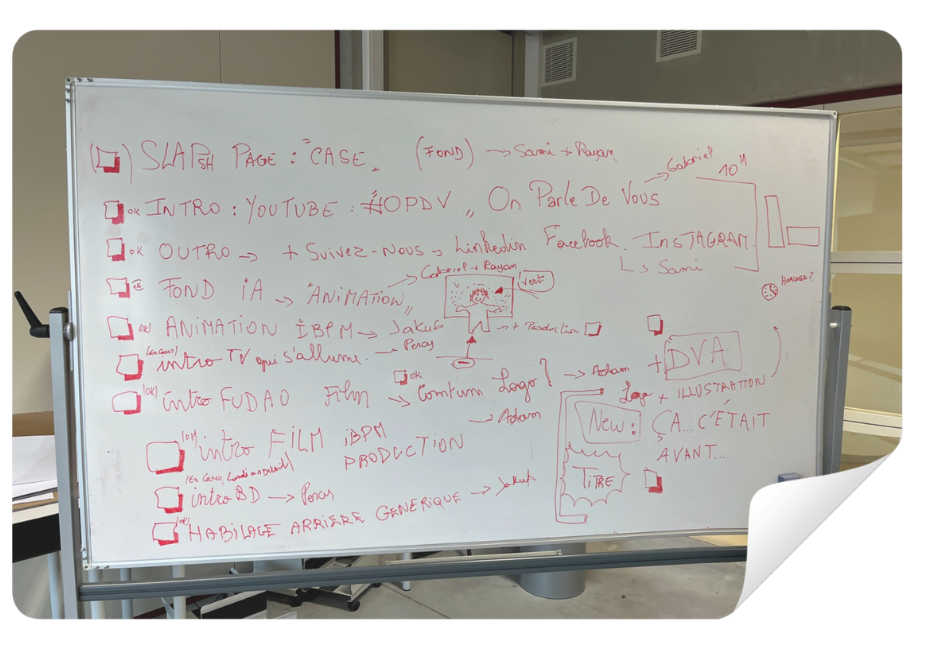 SLAPSH PAGE : "CASE" (FOND) → Sami + Rayan
OK INTRO : YOUTUBE : #OPDV " On Parle De Vous → Gabriel 10"
OK OUTRO → + Suivez-Nous → Linkedin Facebook. InSTAGRAM
↳ Sami
OK FOND iA → "ANiMATiON" → Gabriel + Rayan
Vert
(OK) ANiMATiON iBPM → Jakub
→ + Production
(en cours) intro TV qui s'allume. → Percy
(OK) intro FUDAO Film → Comtum Logo ? → Adam
OK
→ Adam
(OK) intro FiLM iBPM
PRODUCTION
intro BD → Percy
(OK) HABiLAGE ARRiÈRE GÉNÉRiQUE → Jakub
+ DVA
Logo + iLLUSTRATiON
New : ÇA... C'ÉTAiT
AVANT...
TiTRE